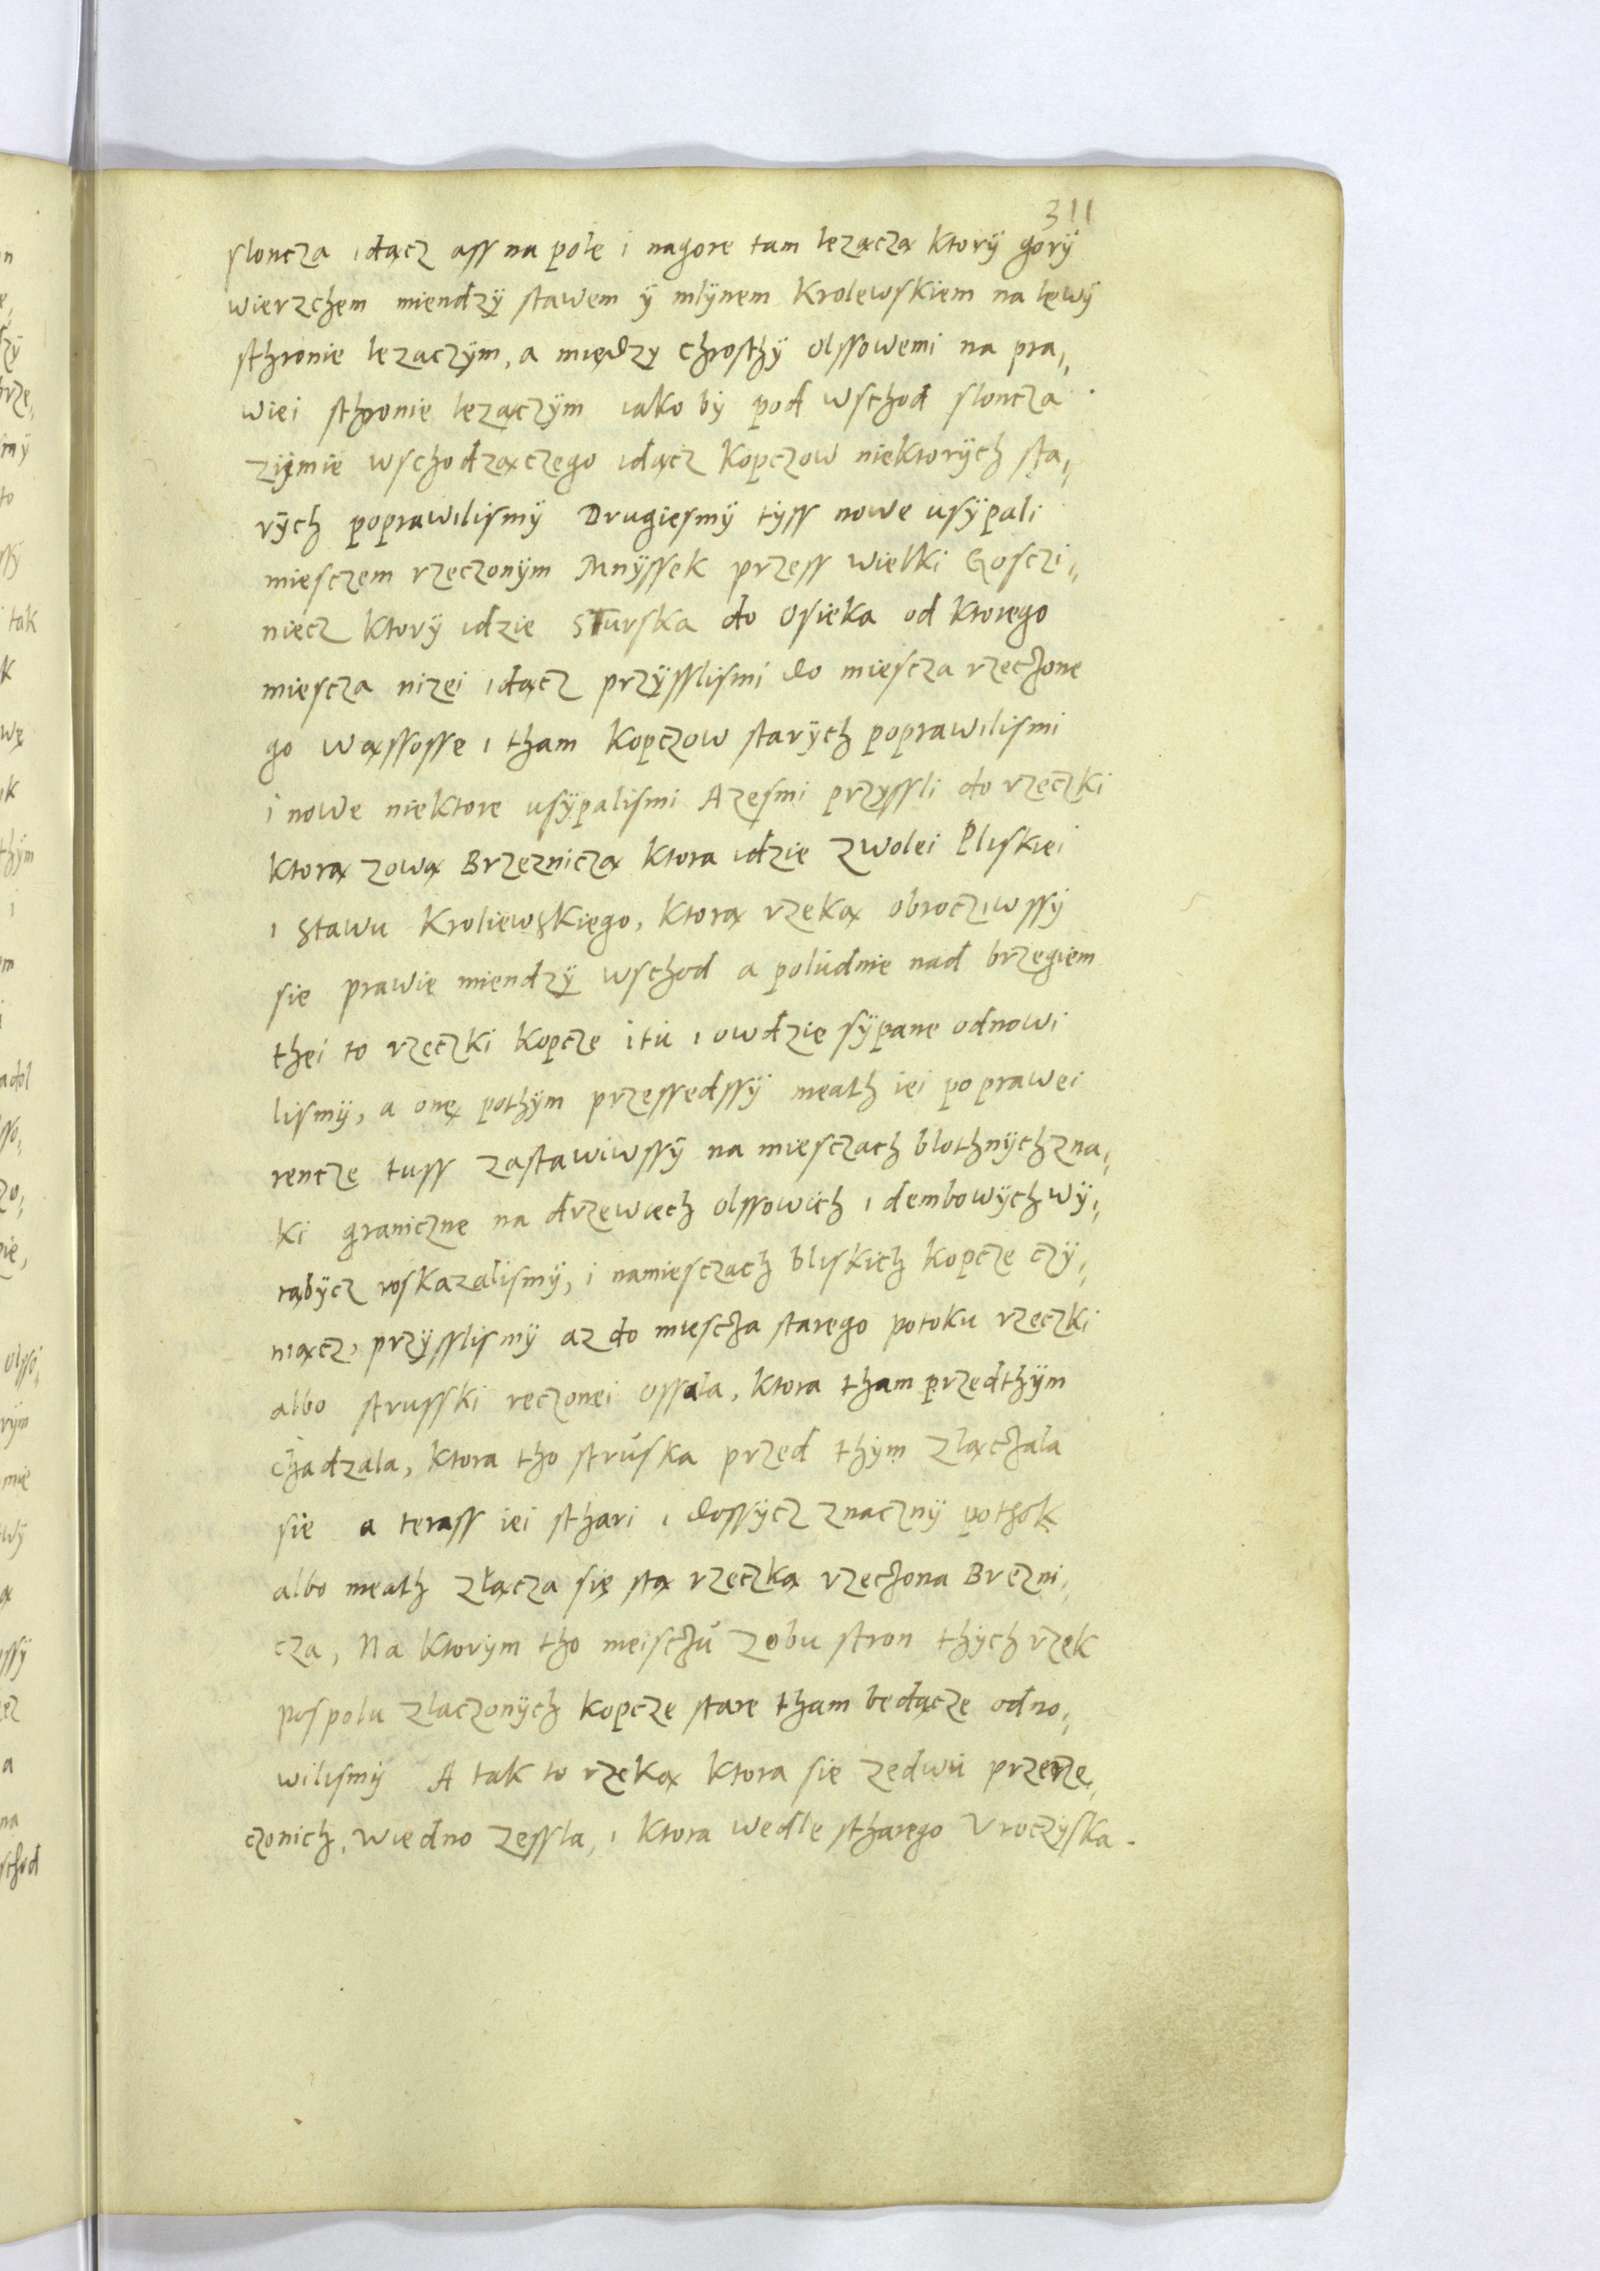 311
sloncza idącz ass na pole i nagore tam lezączą ktorÿ gorÿ
wierzchem miendzÿ stawem ÿ mlÿnem Krolewskiem na lewÿ
sthronie lezaczÿm, a między chrosthÿ olssowemi na pra¬
wiei sthronie lezączÿm iako bÿ pod wschod sloncza
ziÿmie wschodzączego idącz kopczow niektorÿch sta¬
rÿch poprawilismÿ Drugiesmÿ tÿss nowe usÿpali
miesczem rzeczonÿm Mnÿssek przess wielki Gosczi¬
niecz ktorÿ idzie sTurska do Osieka od ktorego
miescza nizei idącz przÿsslismi do miescza rzeczone
go wąssosse i tham kopczow starÿch poprawilismi
i nowe niektore usÿpalismi Azesmi przyssli do rzeczki
ktorą zową Brzezniczą ktora idzie zwolei Pliskiei
i stawu Kroliewskiego, ktorą rzeką obrocziwssÿ
sie prawie miendzÿ wschod a poludnie nad brzegiem
thei to rzeczki kopcze itu i owdzie sÿpane odnowi
lismÿ, a onę pothÿm przessedssÿ meath iei po prawei
rencze tuss zastawiwssÿ na miesczach blothnÿch zna¬
ki graniczne na drzewiech olssowich i dembowÿch wÿ¬
rąbÿcz roskazalismÿ, i namiesczach bliskich kopcze czÿ¬
niącz, przÿsslismÿ az do miescza starego potoku rzeczki
albo strusski reczonei ossala, ktora tham przedthÿm
chadzala, ktora tho struska przed thÿm złączala
sie a terass iei sthari i dossÿcz znacznÿ pothok
albo meath złącza się stą rzeczką rzeczona Brezni¬
cza, Na ktorÿm tho meisczu zobu stron thÿch rzek
pospolu zlaczonÿch kopcze stare tham będącze odno¬
wilismÿ A tak to rzeką ktora sie zedwu przerze¬
czonich, wiedno zessla, i ktora wedle stharego Vroczÿska.